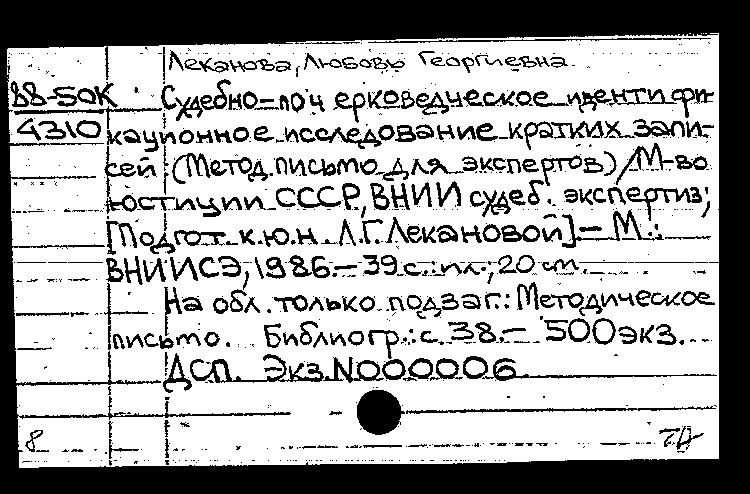 Леканова, Любовь Георгиевна
88-50К Судебно-почерковедческое иденти фи-
4310 кационное исследование кратких запи-
сей: (Метод. письмо для экспертов) / М-во
юстиции СССР, ВНИИ судеб. экспертиз;
[Подгот. к.ю.н. Л.Г. Лекановой]. - М.:
ВНИИСЭ, 1986. - 39 с.: ил.; 20 см.
На обл. только подзаг.: Методическое
письмо. Библиогр.: с. 38. - 500 экз.
ДСП. Экз. N000006
8